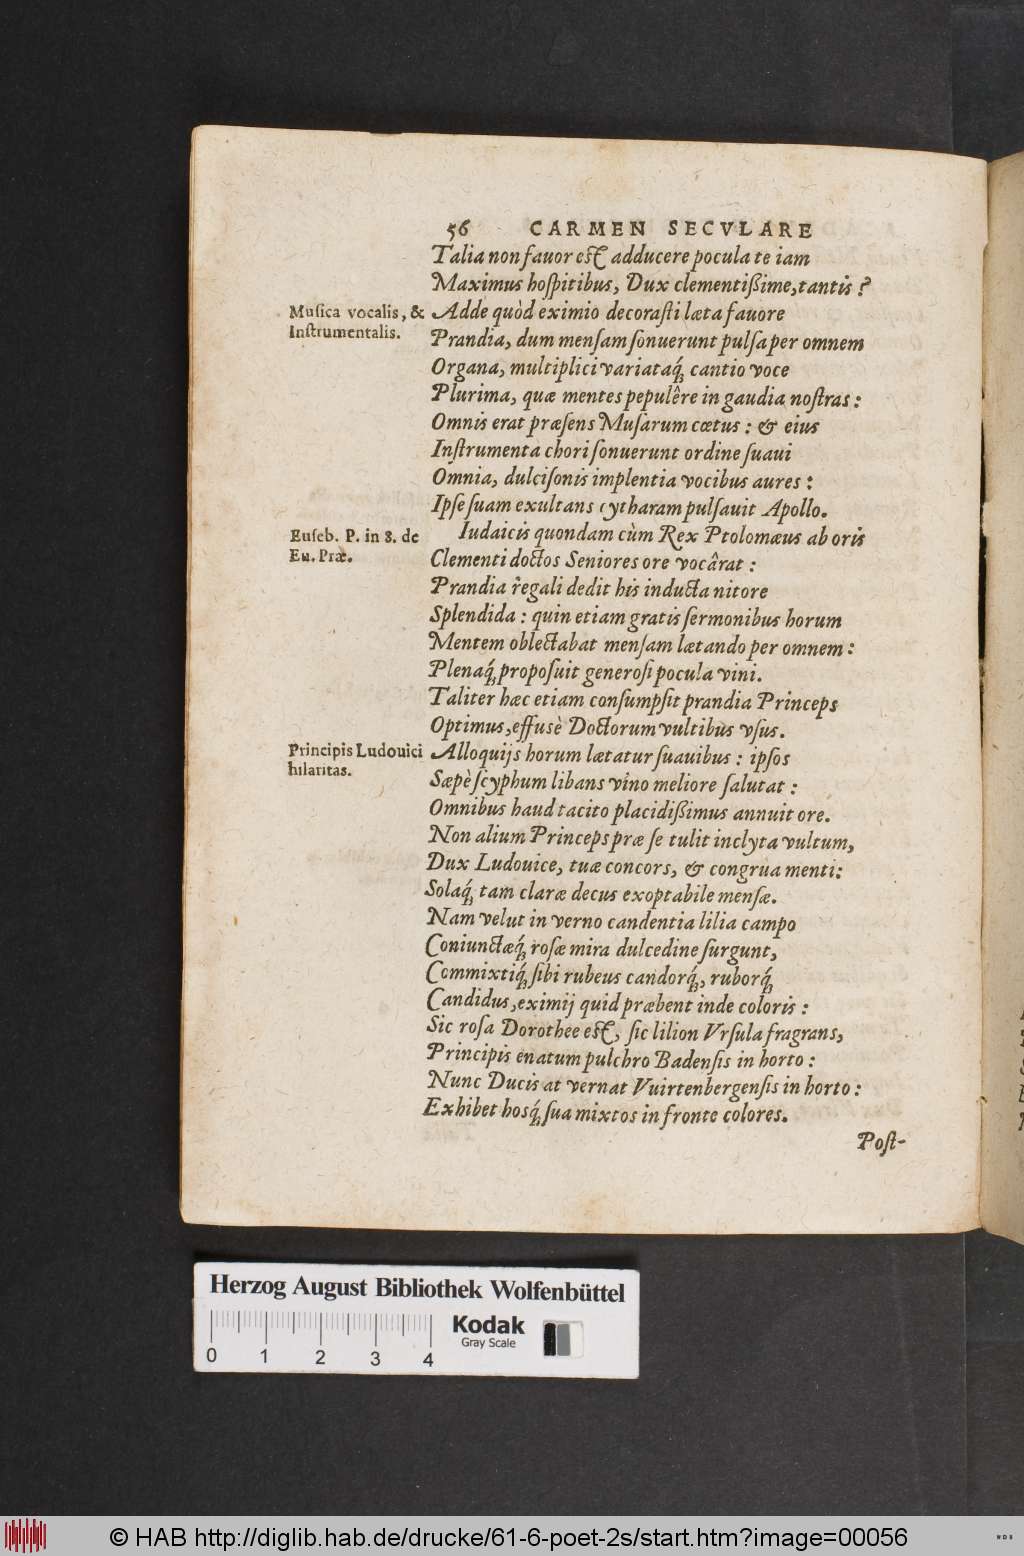 56 CARMEN SECVLARE
Talia non fauor est adducere pocula te iam
Maximus hospitibus, Dux clementißime, tantis?
Musica vocalis, &
Instrumentalis.
Adde quòd eximio decorasti læta fauore
Prandia, dum mensam sonuerunt pulsa per omnem
Organa, multiplici variataq́; cantio voce
Plurima, quæ mentes pepulêre in gaudia nostras:
Omnis erat præsens Musarum cœtus: & eius
Instrumenta chori sonuerunt ordine suaui
Omnia, dulcisonis implentia vocibus aures:
Ipse suam exultans cytharam pulsauit Apollo.
Euseb. P. in 8. de
Eu. Præ.
Iudaicis quondam cùm Rex Ptolomæus ab oris
Clementi doctos Seniores ore vocârat:
Prandia regali dedit his inducta nitore
Splendida: quin etiam gratis sermonibus horum
Mentem oblectabat mensam lætando per omnem:
Plenaq́; proposuit generosi pocula vini.
Taliter hæc etiam consumpsit prandia Princeps
Optimus, effusè Doctorum vultibus vsus.
Principis Ludouici
hilaritas.
Alloquijs horum lætatur suauibus: ipsos
Sæpè scyphum libans vino meliore salutat:
Omnibus haud tacito placidißimus annuit ore.
Non alium Princeps præ se tulit inclyta vultum,
Dux Ludouice, tuæ concors, & congrua menti:
Solaq́; tam claræ decus exoptabile mensæ.
Nam velut in verno candentia lilia campo
Coniunctæq́; rosæ mira dulcedine surgunt,
Commixtiq́; sibi rubeus candorq́;, ruborq́;
Candidus, eximij quid præbent inde coloris:
Sic rosa Dorothee est, sic lilion Vrsula fragrans,
Principis enatum pulchro Badensis in horto:
Nunc Ducis at vernat Vuirtenbergensis in horto:
Exhibet hosq́; sua mixtos in fronte colores.
Post-
Herzog August Bibliothek Wolfenbüttel
Kodak
Gray Scale
0 1 2 3 4
© HAB http://diglib.hab.de/drucke/61-6-poet-2s/start.htm?image=00056